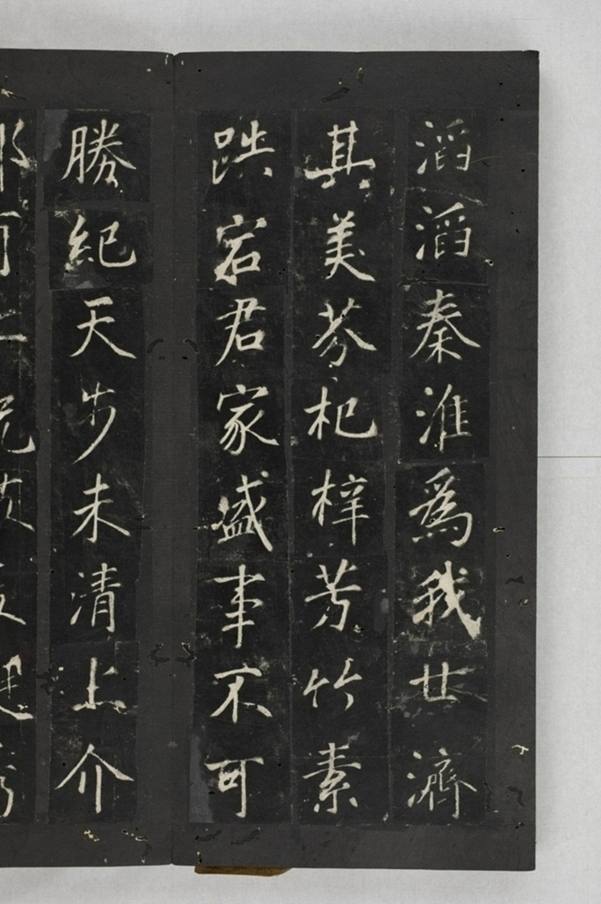 滔滔秦淮爲我世濟
其美芬杞梓芳竹素
跌宕君家盛事不可
勝紀天步未清上介